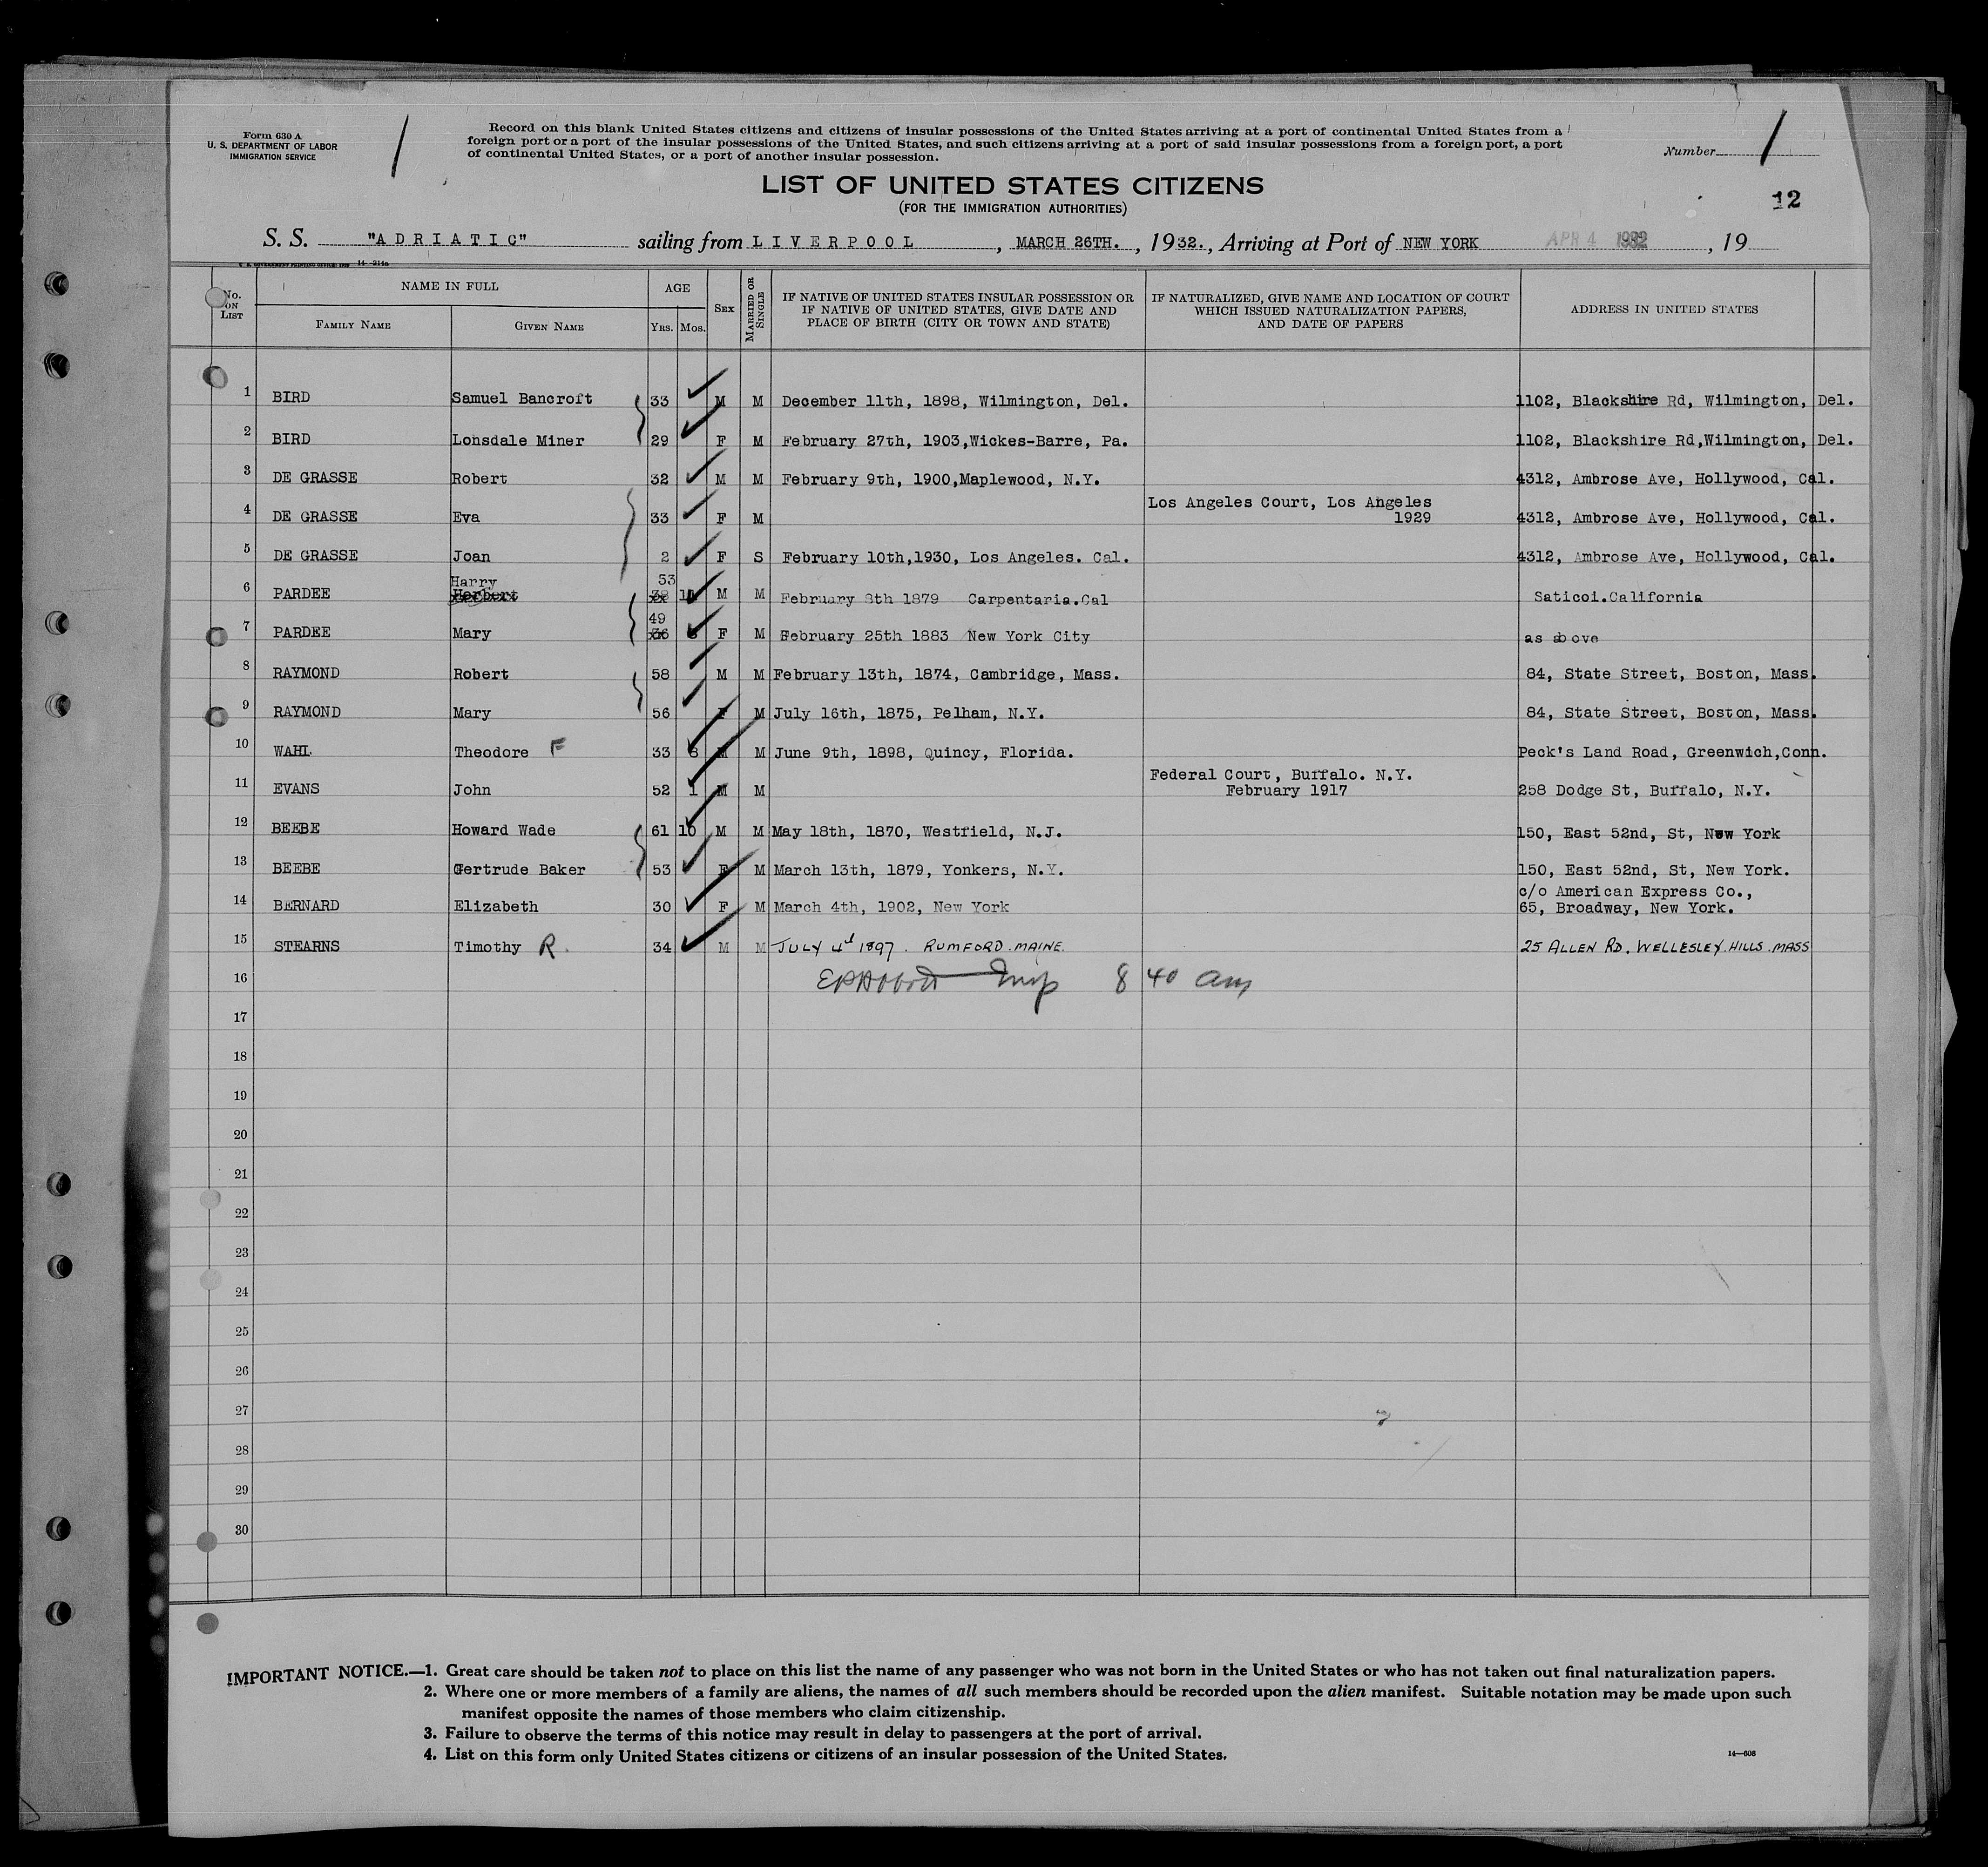 Form 630 A
U. S. DEPARTMENT OF LABOR
IMMIGRATION SERVICE
Record on this blank United States citizens and citizens of insular possessions of the United States arriving at a port of continental United States from a
foreign port or a port of the insular possessions of the United States, and such citizens arriving at a port of said insular possessions from a foreign port, a port
of continental United States, or a port of another insular possession.
Number 1
12
LIST OF UNITED STATES CITIZENS
(FOR THE IMMIGRATION AUTHORITIES)
S. S. "ADRIATIC" sailing from LIVERPOOL, MARCH 26TH., 1932., Arriving at Port of NEW YORK APR 4 1932, 19
14-214a
No. ON LIST NAME IN FULL AGE SEX MARRIED OR SINGLE IF NATIVE OF UNITED STATES INSULAR POSSESSION OR IF NATIVE OF UNITED STATES, GIVE DATE AND PLACE OF BIRTH (CITY OR TOWN AND STATE) IF NATURALIZED, GIVE NAME AND LOCATION OF COURT WHICH ISSUED NATURALIZATION PAPERS, AND DATE OF PAPERS ADDRESS IN UNITED STATES
FAMILY NAME GIVEN NAME YRS. MOS.
1 BIRD Samuel Bancroft 33 M M December 11th, 1898, Wilmington, Del. 1102, Blackshire Rd, Wilmington, Del.
2 BIRD Lonsdale Miner 29 F M February 27th, 1903,Wickes-Barre, Pa. 1102, Blackshire Rd,Wilmington, Del.
3 DE GRASSE Robert 32 M M February 9th, 1900,Maplewood, N.Y. 4312, Ambrose Ave, Hollywood, Cal.
4 DE GRASSE Eva 33 F M Los Angeles Court, Los Angeles 1929 4312, Ambrose Ave, Hollywood, Cal.
5 DE GRASSE Joan 2 F S February 10th,1930, Los Angeles. Cal. 4312, Ambrose Ave, Hollywood, Cal.
6 PARDEE Harry Herbert 53 M M February 8th 1879 Carpentaria.Cal Saticoi.California
7 PARDEE Mary 49 36 F M February 25th 1883 New York City as above
8 RAYMOND Robert 58 M M February 13th, 1874, Cambridge, Mass. 84, State Street, Boston, Mass.
9 RAYMOND Mary 56 F M July 16th, 1875, Pelham, N.Y. 84, State Street, Boston, Mass.
10 WAHL Theodore F 33 8 M M June 9th, 1898, Quincy, Florida. Peck's Land Road, Greenwich,Conn.
11 EVANS John 52 1 M M Federal Court, Buffalo. N.Y. February 1917 258 Dodge St, Buffalo, N.Y.
12 BEEBE Howard Wade 61 10 M M May 18th, 1870, Westfield, N.J. 150, East 52nd, St, New York
13 BEEBE Gertrude Baker 53 F M March 13th, 1879, Yonkers, N.Y. 150, East 52nd, St, New York.
14 BERNARD Elizabeth 30 F M March 4th, 1902, New York c/o American Express Co., 65, Broadway, New York.
15 STEARNS Timothy R. 34 M M JULY 4th 1897. RUMFORD. MAINE. 25 ALLEN RD. WELLESLEY HILLS. MASS
16 Insp 8 40 am
17
18
19
20
21
22
23
24
25
26
27
28
29
30
IMPORTANT NOTICE.—1. Great care should be taken not to place on this list the name of any passenger who was not born in the United States or who has not taken out final naturalization papers.
2. Where one or more members of a family are aliens, the names of all such members should be recorded upon the alien manifest. Suitable notation may be made upon such
manifest opposite the names of those members who claim citizenship.
3. Failure to observe the terms of this notice may result in delay to passengers at the port of arrival.
4. List on this form only United States citizens or citizens of an insular possession of the United States.
14—608